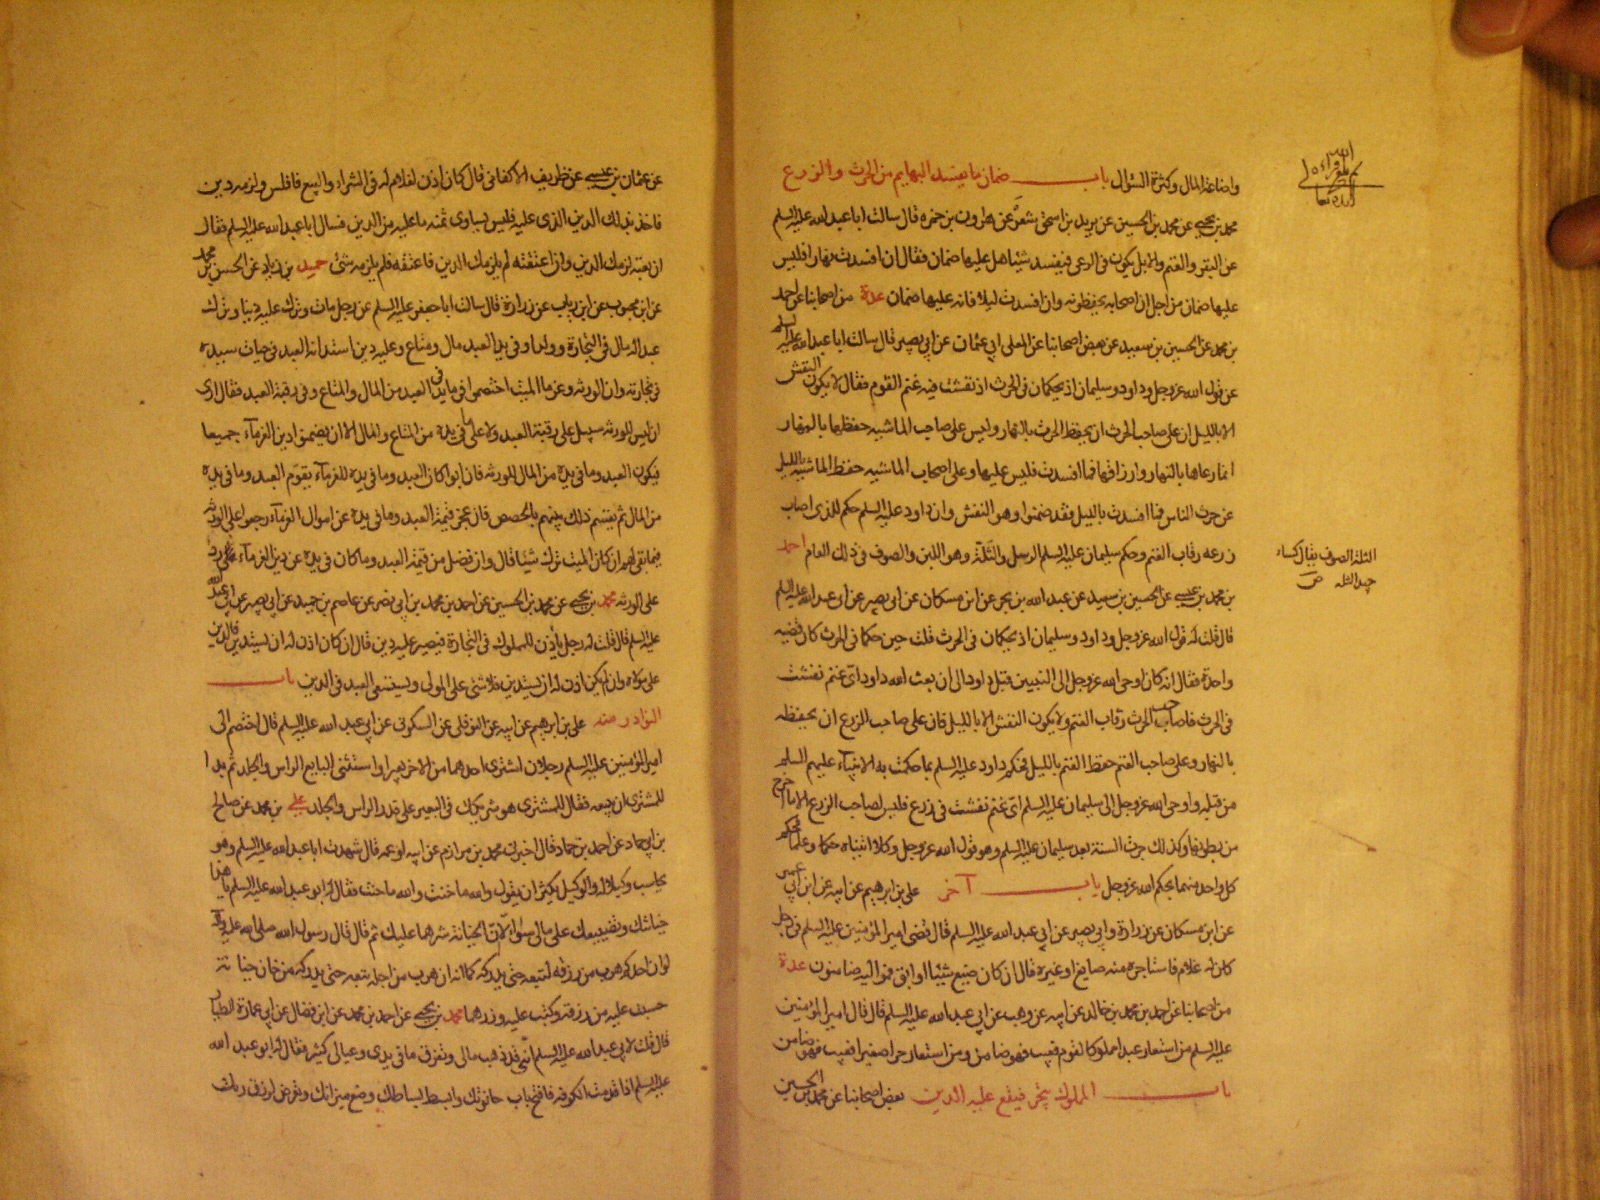 واضاعة المال وكثرة السؤال باب ضمان ما يفسد البهايم من الحرث والزرع
محمد بن يحيى عن محمد بن الحسين عن يزيد بن اسحق شعر عن هارون بن حمزه قال سالت ابا عبد الله عليه السلم
عن البقر والغنم والابل يكون فى الرعى فيفسد شيئا هل عليها ضمان فقال ان افسدت نهارا فليس
عليها ضمان من اجل ان اصحابه يحفظونه وان افسدت ليلا فانه عليها ضمان عدة من اصحابنا عن احمد
بن محمد عن الحسين بن سعيد عن بعض اصحابنا عن المعلى ابى عثمان عن ابى بصير قال سالت ابا عبد الله عليه السلم
عن قول الله عز وجل وداود وسليمان اذ يحكمان فى الحرث اذ نفشت فيه غنم القوم فقال لا يكون النفش
الا بالليل ان على صاحب الحرث ان يحفظ الحرث بالنهار وليس على صاحب الماشيه حفظها بالنهار
انما رعاها بالنهار وارزاقها فما افسدت فليس عليها وعلى اصحاب الماشيه حفظ الماشيه بالليل
عن حرث الناس فما افسدت بالليل فقد ضمنوا وهو النفش وان داود عليه السلم حكم للذى اصاب
زرعه رقاب الغنم وحكم سليمان عليه السلم الرسل والثلّة وهو اللبن والصوف فى ذلك العام احمد
بن محمد بن عيسى عن الحسين بن سعيد عن عبد الله بن بحر عن ابن مسكان عن ابى بصير عن ابى عبد الله عليه السلم
قال قلت له قول الله عز وجل وداود وسليمان اذ يحكمان فى الحرث قلت حين حكما فى الحرث كان قضيه
واحدة فقال انه كان اوحى الله عز وجل الى النبيين قبل داود الى ان بعث الله داود اى غنم نفشت
فى الحرث فلصاحب الحرث رقاب الغنم ولا يكون النفش الا بالليل فان على صاحب الزرع ان يحفظه
بالنهار وعلى صاحب الغنم حفظ الغنم بالليل فحكم داود عليه السلم بما حكمت به الانبيآء عليهم السلم
من قبله واوحى الله عز وجل الى سليمان عليه السلم اى غنم نفشت فى زرع فليس لصاحب الزرع الا ما خرج
من بطونها وكذلك جرت السنة بعد سليمان عليه السلم وهو قول الله عز وجل وكلا اتيناه حكما وعلما فحكم
كل واحد منهما بحكم الله عز وجل باب آخر على بن ابرهيم عن ابيه عن ابن ابى عمير
عن ابن مسكان عن زرارة وابى بصير عن ابى عبد الله عليه السلم قال قضى امير المؤمنين عليه السلم فى رجل
كان له غلام فاستاجره منه صايغ او غيره قال ان كان ضيع شيئا او ابق فمواليه ضامنون عدة
من اصحابنا عن احمد بن محمد بن خالد عن ابيه عن وهب عن ابى عبد الله عليه السلم قال قال امير المؤمنين
عليه السلم من استعار عبدا مملوكا لقوم فعيب فهو ضامن ومن استعار حرا صغيرا فعيب فهو ضامن
باب المملوك يتجر فيقع عليه الدين بعض اصحابنا عن محمد بن الحسين
الثلة الصوف يقال كساء
جيد الثله ص
عن عثمان بن عيسى عن ظريف الاكفانى قال كان اذن لغلام له فى الشراء والبيع فافلس ولزمه دين
فاخذ بذلك الدين الذى عليه فليس يساوى ثمنه ما عليه من الدين فسال ابا عبد الله عليه السلم فقال
ان بعته لزمك الدين وان اعتقته لم يلزمك الدين فاعتقه فلم يلزمه شئ حميد بن زياد عن الحسن بن محمد
عن ابن محبوب عن ابن رياب عن زرارة قال سالت ابا جعفر عليه السلم عن رجل مات وترك عليه دينا وترك
عبدا له مال فى التجارة وولدا وفى يد العبد مال ومتاع وعليه دين استدانه العبد فى حياة سيده
فى تجارته وان الورثه وغرما الميت اختصموا فى ما فى يد العبد من المال والمتاع وفى رقبة العبد فقال ارى
ان ليس للورثه سبيل على رقبة العبد ولا على ما فى يده من المتاع والمال الا ان يضمنوا دين الغرمآء جميعا
فيكون العبد وما فى يده من المال للورثه فان ابوا كان العبد وما فى يده للغرمآء يقوّم العبد وما فى يده
من المال ثم يقسم ذلك بينهم بالحصص فان عجز قيمة العبد وما فى يده عن اموال الغرمآء رجعوا على الورثه
فيما بقى لهم ان كان الميت ترك شيئا قال وان فضل من قيمة العبد وما كان فى يده عن دين الغرمآء رد
على الورثه محمد بن يحيى عن محمد بن الحسين عن احمد بن محمد بن ابى نصر عن عاصم بن حميد عن ابى بصير عن ابى عبد الله
عليه السلم قال قلت له رجل ياذن للمملوك فى التجارة فيصير عليه دين قال ان كان اذن له ان يستدين فالدين
على مولاه وان لم يكن اذن له ان يستدين فلا شئ على المولى ويستسعى العبد فى الدين باب
النوادر منه على بن ابرهيم عن ابيه عن النوفلى عن السكونى عن ابى عبد الله عليه السلم قال اختصم الى
امير المؤمنين عليه السلم رجلان اشترى احدهما من الاخر بعيرا واستثنى البايع الراس والجلد ثم بدا
للمشترى ان يبيعه فقال للمشترى هو شريكك فى البعير على قدر الراس والجلد على بن محمد عن صالح
بن ابى حماد عن احمد بن حماد قال اخبرنى محمد بن مرازم عن ابيه او عمه قال شهدت ابا عبد الله عليه السلم وهو
يحاسب وكيلا له والوكيل يكثر ان يقول والله ما خنت والله ما خنت فقال له ابو عبد الله عليه السلم يا هذا
خيانتك وتضييعك على مالى سواء الا ان الخيانة شرها عليك ثم قال قال رسول الله صلى الله عليه وآله
لو ان احدكم هرب من رزقه لتبعه حتى يدركه كما انه ان هرب من اجله تبعه حتى يدركه من خان خيانة
حسبت عليه من رزقه وكتب عليه وزرها محمد بن يحيى عن احمد بن محمد عن ابن فضال عن ابى عمارة الطيار
قال قلت لابى عبد الله عليه السلم انّى قد ذهب مالى وتفرق ما فى يدى وعيالى كثير فقال له ابو عبد الله
عليه السلم اذا قدمت الكوفه فافتح باب حانوتك وابسط بساطك وضع ميزانك وتعرض لرزق ربك